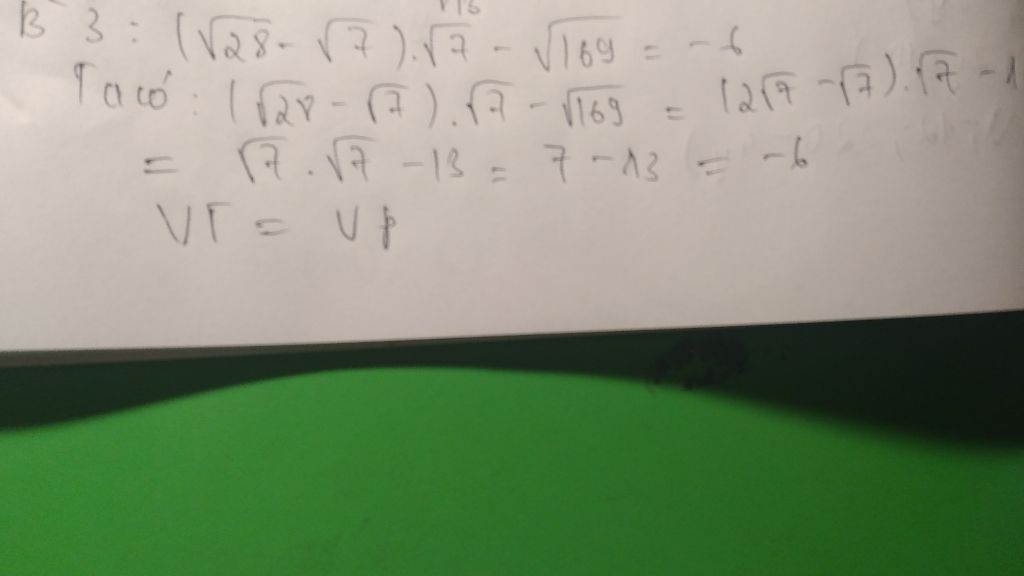 B 3: (√28 - √7).√7 - √169 = -6
Ta có: (√28 - √7).√7 - √169 = (2√7 - √7).√7 - 1
= √7.√7 - 13 = 7 - 13 = -6
VT = VP